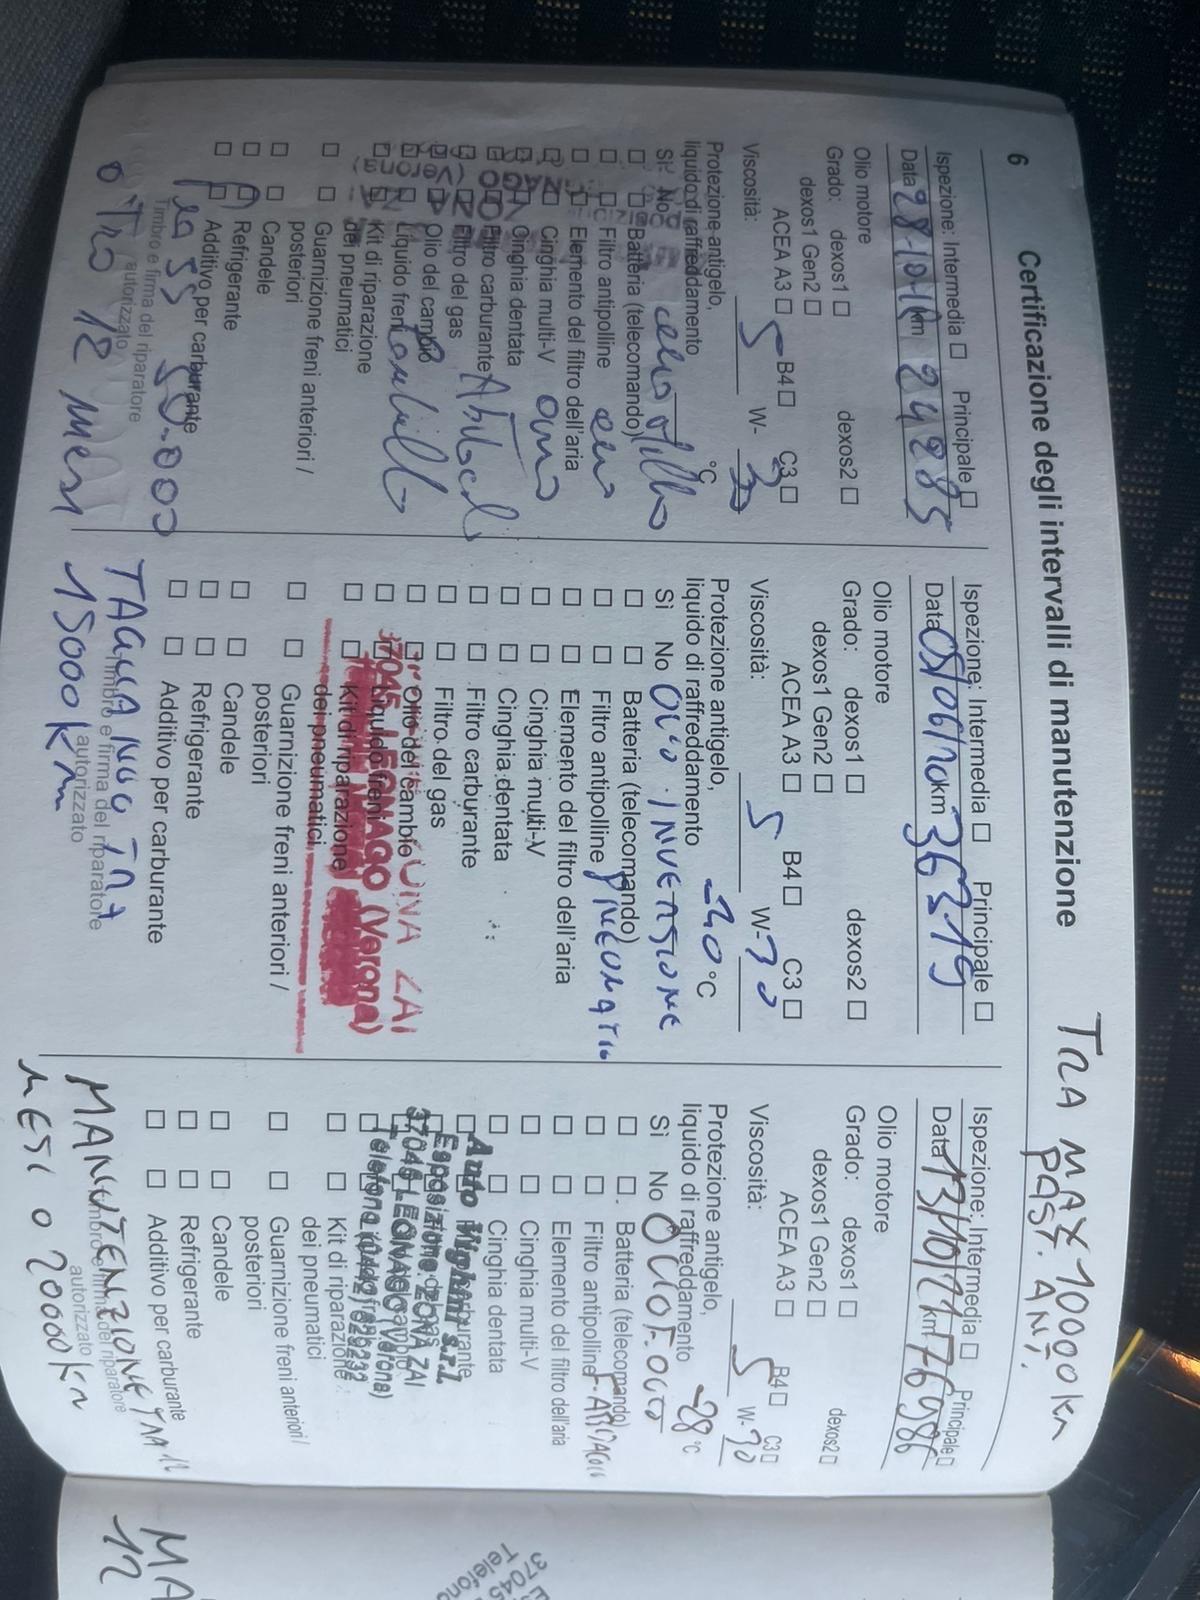 6 Certificazione degli intervalli di manutenzione
TRA MAX 10000 km
PAST. ANT.
Ispezione: Intermedia □ Principale □
Data 28-10-18 km 24285
Olio motore
Grado: dexos1 □ dexos2 □
dexos1 Gen2 □
ACEA A3 □ B4 □ C3 □
Viscosità: 5 W- 30
Protezione antigelo,
liquido di raffreddamento °C
Sì No
□ □ Batteria (telecomando)
□ □ Filtro antipolline
□ □ Elemento del filtro dell'aria
□ □ Cinghia multi-V
□ □ Cinghia dentata
□ □ Filtro carburante
□ □ Filtro del gas
□ □ Olio del cambio
□ □ Liquido freni
□ □ Kit di riparazione
dei pneumatici
□ □ Guarnizione freni anteriori /
posteriori
□ □ Candele
□ □ Refrigerante
□ □ Additivo per carburante
50.000
Timbro e firma del riparatore
autorizzato
o Tra 12 mesi
Ispezione: Intermedia □ Principale □
Data 05/06/20 km 36319
Olio motore
Grado: dexos1 □ dexos2 □
dexos1 Gen2 □
ACEA A3 □ B4 □ C3 □
Viscosità: 5 W- 30
Protezione antigelo,
liquido di raffreddamento -20 °C
Sì No OLIO · INVERSIONE
□ □ Batteria (telecomando)
□ □ Filtro antipolline PNEUMATICI
□ □ Elemento del filtro dell'aria
□ □ Cinghia multi-V
□ □ Cinghia dentata
□ □ Filtro carburante
□ □ Filtro del gas
□ □ Olio del cambio
□ □ Liquido freni
□ □ Kit di riparazione
dei pneumatici
ZONA ZAI
37045 LEGNAGO (Verona)
□ □ Guarnizione freni anteriori /
posteriori
□ □ Candele
□ □ Refrigerante
□ □ Additivo per carburante
Timbro e firma del riparatore
autorizzato
15000 km
Ispezione: Intermedia □ Principale □
Data 13/10/21 km 76986
Olio motore
Grado: dexos1 □ dexos2 □
dexos1 Gen2 □
ACEA A3 □ B4 □ C3 □
Viscosità: 5 W- 30
Protezione antigelo,
liquido di raffreddamento -28 °C
Sì No OLIO F. OLIO
□ □ Batteria (telecomando)
□ □ Filtro antipolline
□ □ Elemento del filtro dell'aria
□ □ Cinghia multi-V
□ □ Cinghia dentata
□ □ Filtro carburante
□ □ Filtro del gas
□ □ Olio del cambio
□ □ Liquido freni
□ □ Kit di riparazione
dei pneumatici
Auto Vighini s.r.l.
Esposizione: ZONA ZAI
37045 LEGNAGO (Verona)
□ □ Guarnizione freni anteriori /
posteriori
□ □ Candele
□ □ Refrigerante
□ □ Additivo per carburante
Timbro e firma del riparatore
autorizzato
MANUTENZIONE TRA 12
MESI o 20000 km
37045
Telefono
MA
12